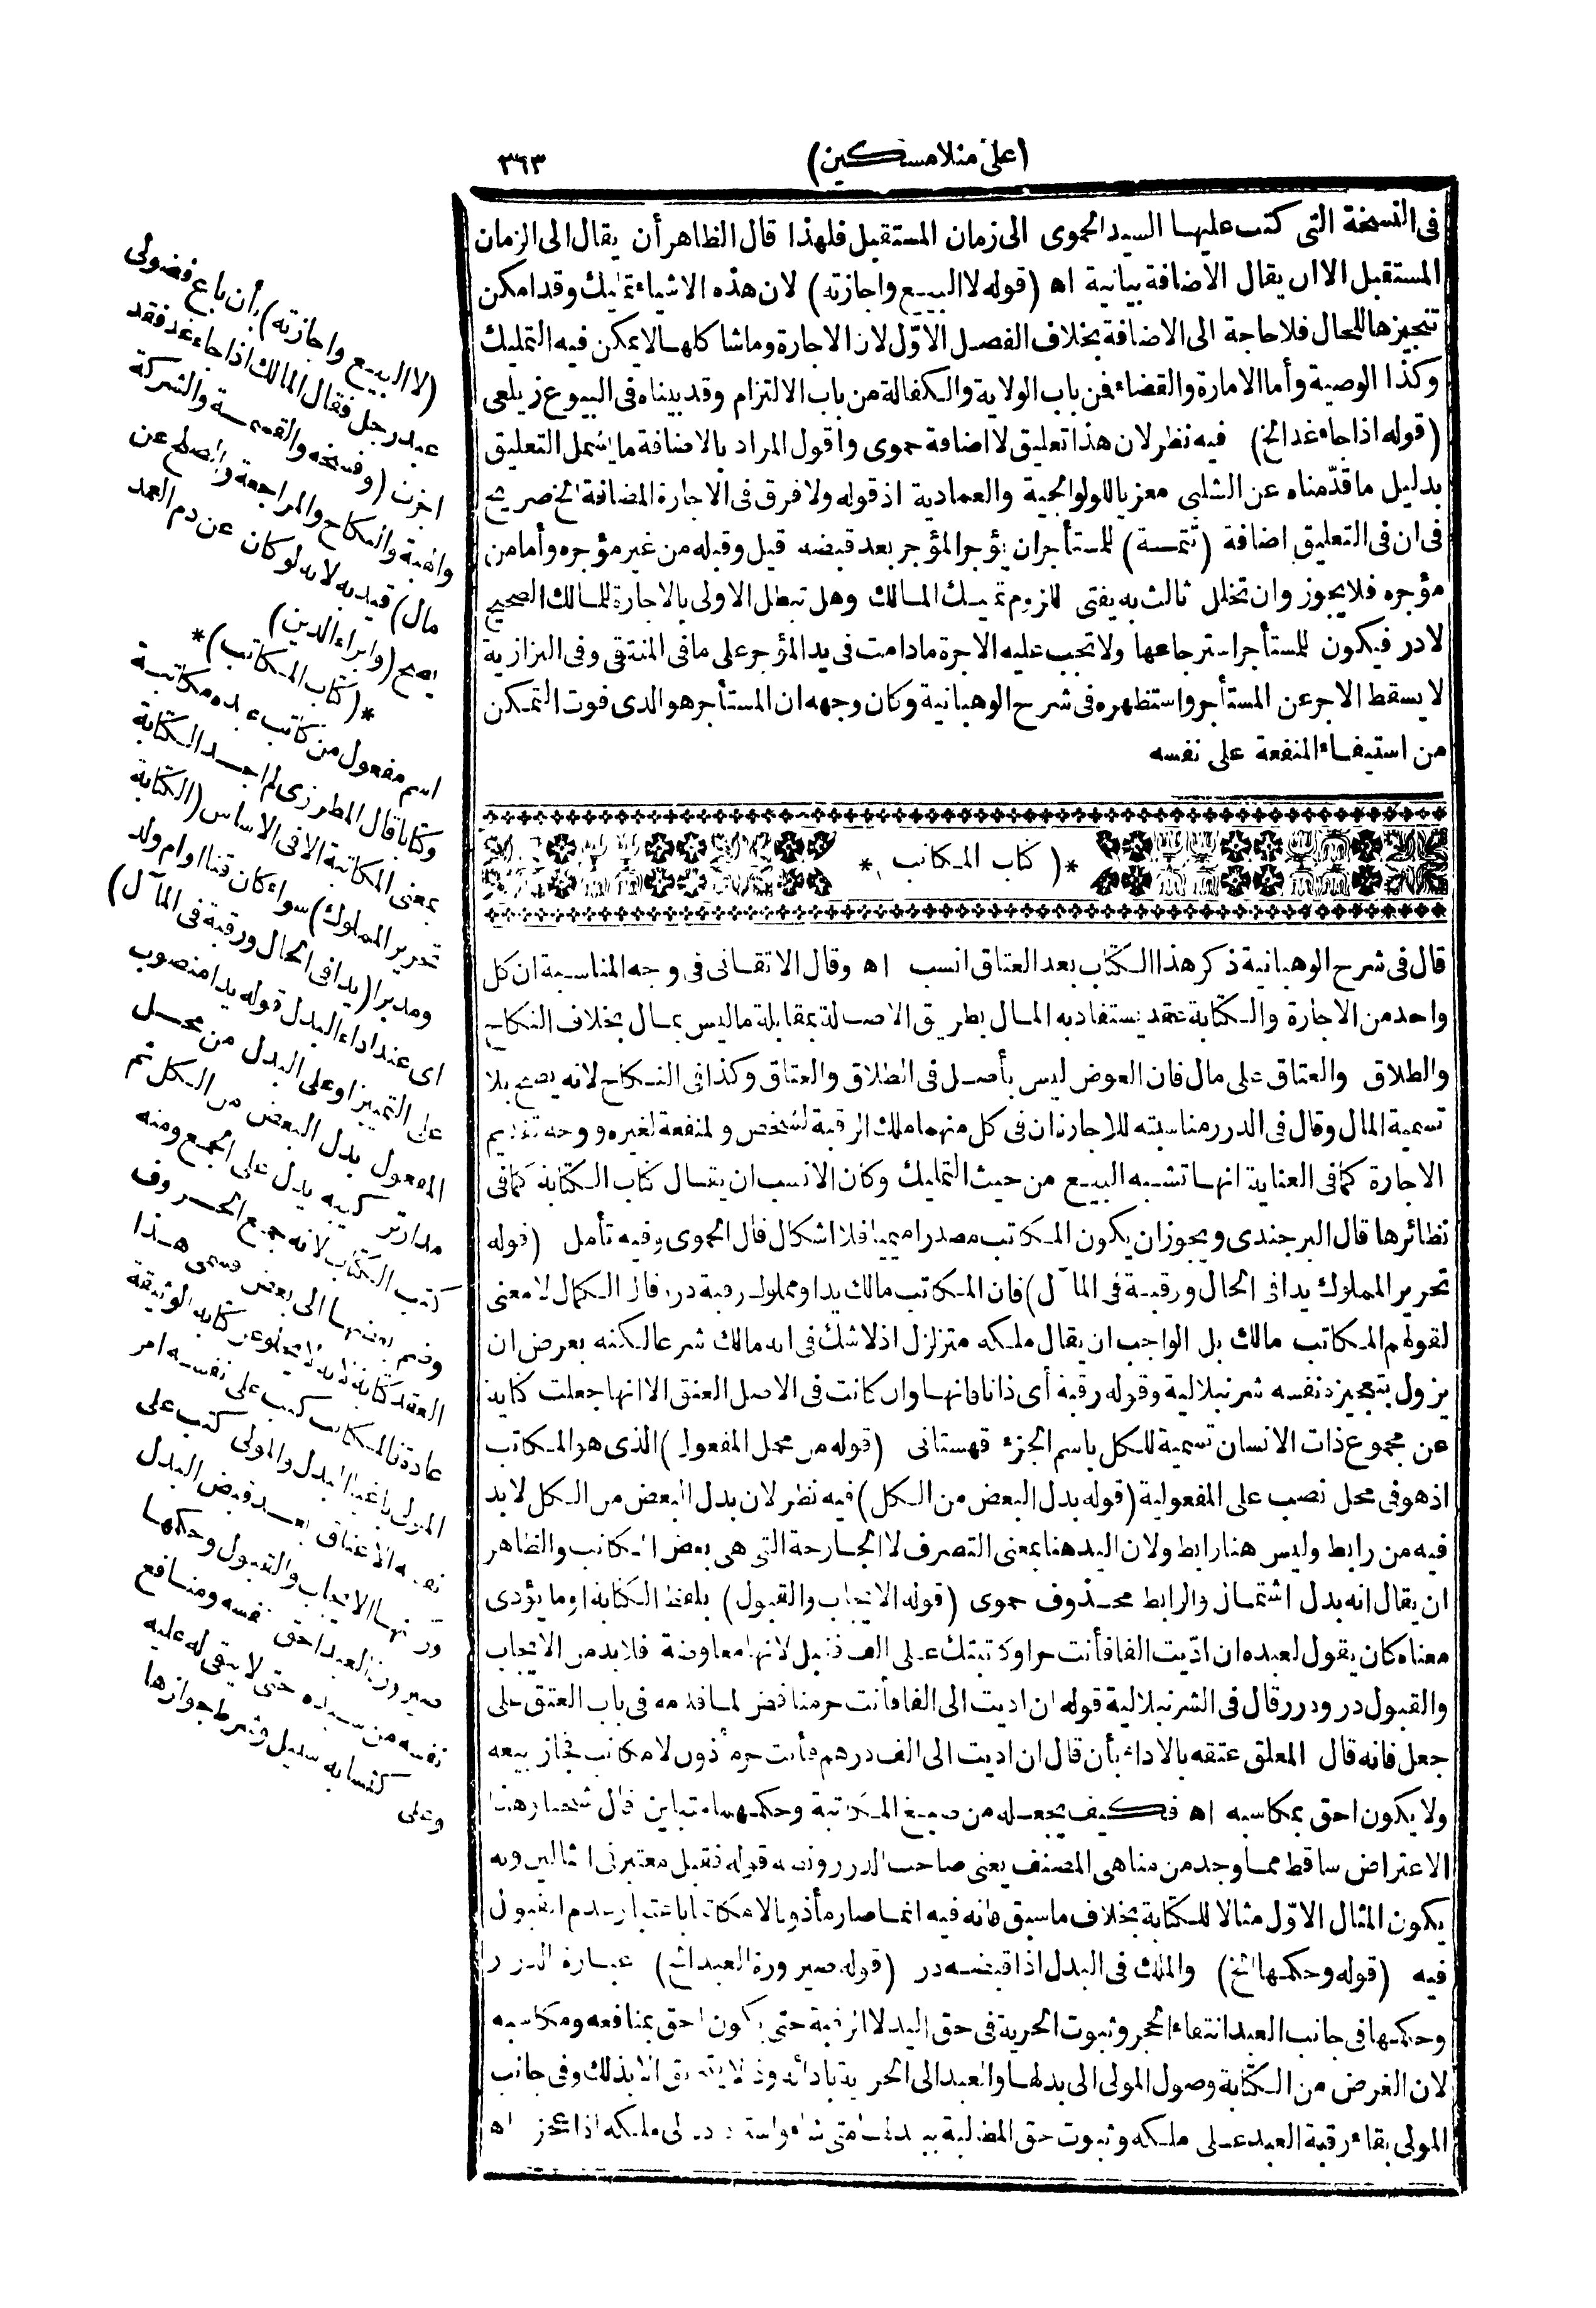 (على منلا مسكين)
٣٦٣
فى النسخة التى كتب عليها السيد الحموى الى زمان المستقبل فلهذا قال الظاهر أن يقال الى الزمان
المستقبل الا ان يقال الاضافة بيانية اه (قوله لا البيع واجازته) لان هذه الاشياء تمليك وقد امكن
تنجيزها للحال فلا حاجة الى الاضافة بخلاف الفصل الاوّل لان الاجارة وما شاكلها لا يمكن فيه التمليك
وكذا الوصية وأما الامارة والقضاء فمن باب الولاية والكفالة من باب الالتزام وقد بيناه فى البيوع زيلعى
(قوله اذا جاء غد الخ) فيه نظر لان هذا تعليق لا اضافة حموى واقول المراد بالاضافة ما يشمل التعليق
بدليل ما قدّمناه عن الشلبى معزيا للولوالجية والعمادية اذ قوله ولا فرق فى الاجارة المضافة الخ صريح
فى ان فى التعليق اضافة (تتمة) للمستأجر ان يؤجر المؤجر بعد قبضه قيل وقبله من غير مؤجره وأما من
مؤجره فلا يجوز وان تخلل ثالث به يفتى للزوم تمليك المالك وهل تبطل الاولى بالاجارة للمالك الصحيح
لا در فيكون للمستأجر استرجاعها ولا تجب عليه الاجرة ما دامت فى يد المؤجر على ما فى المنتقى وفى البزازية
لا يسقط الاجر عن المستأجر واستظهره فى شرح الوهبانية وكان وجهه ان المستأجر هو الذى فوت التمكن
من استيفاء المنفعة على نفسه
*( كتاب المكاتب )*
قال فى شرح الوهبانية ذكر هذا الكتاب بعد العتاق انسب اه وقال الاتقانى فى وجه المناسبة ان كل
واحد من الاجارة والكتابة عقد يستفاد به المال بطريق الاصالة بمقابلة ما ليس بمال بخلاف النكاح
والطلاق والعتاق على مال فان العوض ليس بأصل فى الطلاق والعتاق وكذا فى النكاح لانه يصح بلا
تسمية المال وقال فى الدرر مناسبته للاجارة ان فى كل منهما ملك الرقبة لشخص والمنفعة لغيره ووجه تقديم
الاجارة كما فى العناية انها تشبه البيع من حيث التمليك وكان الانسب ان يقال كتاب الكتابة كما فى
نظائرها قال البرجندى ويجوز ان يكون المكاتب مصدرا ميميا فلا اشكال قال الحموى وفيه تأمل (قوله
تحرير المملوك يدا فى الحال ورقبة فى المآل) فان المكاتب مالك يدا ومملوك رقبة درر قال الكمال لا معنى
لقولهم المكاتب مالك بل الواجب ان يقال ملكه متزلزل اذ لا شك فى انه مالك شرعا لكنه بعرض ان
يزول بتعجيزه نفسه شرنبلالية وقوله رقبة أى ذاتا فانها وان كانت فى الاصل العنق الا انها جعلت كناية
عن مجموع ذات الانسان تسمية للكل باسم الجزء قهستانى (قوله من محل المفعول) الذى هو المكاتب
اذ هو فى محل نصب على المفعولية (قوله بدل البعض من الكل) فيه نظر لان بدل البعض من الكل لا بد
فيه من رابط وليس هنا رابط ولان اليد هنا بمعنى التصرف لا الجارحة التى هى بعض المكاتب والظاهر
ان يقال انه بدل اشتمال والرابط محذوف حموى (قوله الايجاب والقبول) بلفظ الكتابة او ما يؤدى
معناه كان يقول لعبده ان ادّيت الفا فأنت حر او كاتبتك على الف فقبل لانها معاوضة فلا بد من الايجاب
والقبول در ودرر قال فى الشرنبلالية قوله ان اديت الى الفا فأنت حر مناقض لما قدمه فى باب العتق على
جعل فانه قال المعلق عتقه بالاداء بأن قال ان اديت الى الف درهم فأنت حر مأذون لا مكاتب فجاز بيعه
ولا يكون احق بمكاسبه اه فكيف يجعله من صيغ المكاتبة وحكمهما متباين قال شيخنا رهذا
الاعتراض ساقط مما وجد من مناهى المصنف يعنى صاحب الدرر ونصه قوله فقبل معتبر فى المثالين وبه
يكون المثال الاوّل مثالا للكتابة بخلاف ما سبق فانه فيه انما صار مأذونا لا مكاتبا باعتبار عدم القبول
فيه (قوله وحكمها الخ) والملك فى البدل اذا قبضه در (قوله صيرورة العبد الخ) عبارة الدرر
وحكمها فى جانب العبد انتفاء الحجر وثبوت الحرية فى حق اليد لا الرقبة حتى يكون احق بمنافعه ومكاسبه
لان الغرض من الكتابة وصول المولى الى بدلها والعبد الى الحرية بادائه وذا لا يتحقق الا بذلك وفى جانب
المولى بقاء رقبة العبد على ملكه وثبوت حق المطالبة ببدلها متى شاء واسترداده الى ملكه اذا عجز اه
(لا البيع واجازته) بأن باع فضولى
عبد رجل فقال المالك اذا جاء غد فقد
اجزت (وفسخه والقسمة والشركة
والهبة والنكاح والمراجعة والصلح عن
مال) قيد به لانه لو كان عن دم العمد
يصح (وابراء الدين)
*(كتاب المكاتب)*
اسم مفعول من كاتب عبده مكاتبة
وكتابا قال المطرزى لم اجد الكتابة
بمعنى المكاتبة الا فى الاساس (الكتابة
تحرير المملوك) سواء كان قنا او ام ولد
ومدبرا (يدا فى الحال ورقبة فى المآل)
اى عند اداء البدل قوله يدا منصوب
على التمييز او على البدل من محل
المفعول بدل البعض من الكل ثم
مدار تركيبه يدل على الجمع ومنه
كتب الكتاب لانه جمع الحروف
وضم بعضها الى بعض وسمى هذا
العقد كتابة لانه لا يخلو عن كتابة الوثيقة
عادة فالمكاتب كتب على نفسه امر
المولى باغناء البدل والمولى كتب على
نفسه الاعتاق بعد قبض البدل
وركنها الايجاب والقبول وحكمها
صيرورة العبد احق نفسه ومنافع
نفسه من سيده حتى لا يبقى له عليه
وعلى اكتسابه سبيل وشرط جوازها